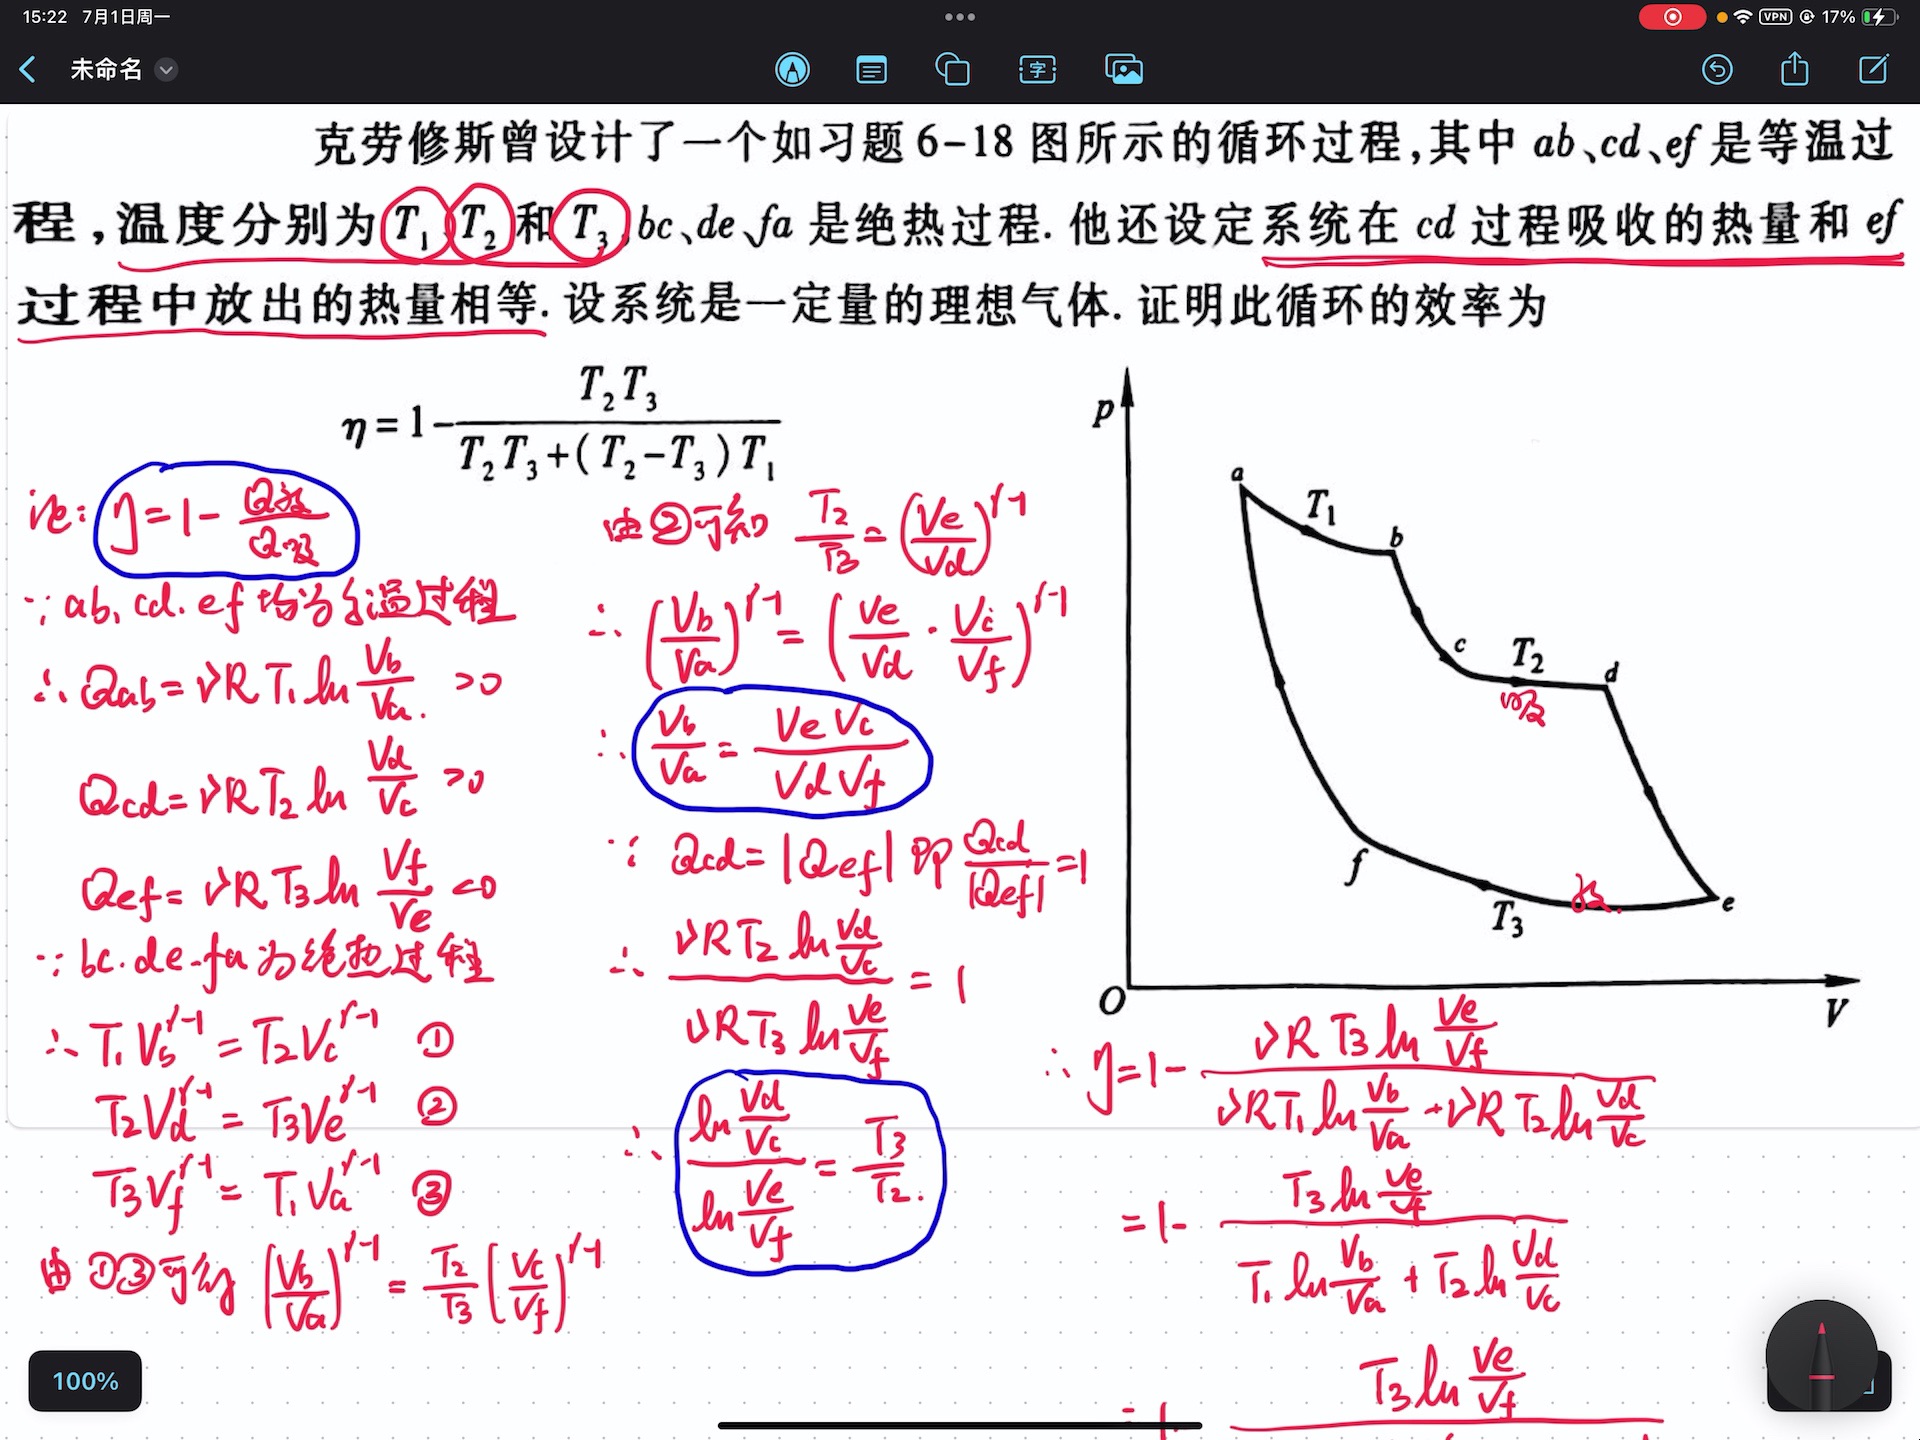 15:22 7月1日周一
VPN 17%
未命名
字
克劳修斯曾设计了一个如习题 6-18 图所示的循环过程,其中 ab、cd、ef 是等温过
程,温度分别为 T₁ T₂ 和 T₃, bc、de、fa 是绝热过程. 他还设定系统在 cd 过程吸收的热量和 ef
过程中放出的热量相等. 设系统是一定量的理想气体. 证明此循环的效率为
η = 1 - T₂T₃ / (T₂T₃+(T₂-T₃)T₁)
证: η = 1 - Q放/Q吸
∵ ab, cd. ef 均为等温过程
∴ Qab = νRT₁ ln Vb/Va. >0
Qcd = νRT₂ ln Vd/Vc >0
Qef = νRT₃ ln Vf/Ve <0
∵ bc. de. fa 为绝热过程
∴ T₁Vb^γ-1 = T₂Vc^γ-1 ①
T₂Vd^γ-1 = T₃Ve^γ-1 ②
T₃Vf^γ-1 = T₁Va^γ-1 ③
由①③可知 (Vb/Va)^γ-1 = T₂/T₃ (Vc/Vf)^γ-1
由②可知 T₂/T₃ = (Ve/Vd)^γ-1
∴ (Vb/Va)^γ-1 = (Ve/Vd · Vc/Vf)^γ-1
∴ Vb/Va = VeVc/VdVf
∵ Qcd = |Qef| 即 Qcd/|Qef| = 1
∴ νRT₂ ln Vd/Vc / νRT₃ ln Ve/Vf = 1
∴ ln Vd/Vc / ln Ve/Vf = T₃/T₂.
p
a
T₁
b
c
T₂
d
吸
f
放.
e
T₃
O
V
∴ η = 1 - νRT₃ ln Ve/Vf / (νRT₁ ln Vb/Va + νRT₂ ln Vd/Vc)
= 1 - T₃ ln Ve/Vf / (T₁ ln Vb/Va + T₂ ln Vd/Vc)
T₃ ln Ve/Vf
100%